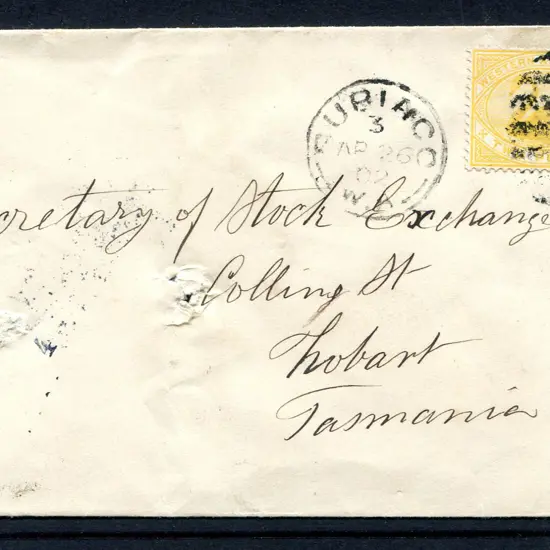 SUBIACO
3
AP 26
02
W.A
WESTERN
cretary of Stock Exchange
Collins St
Hobart
Tasmania